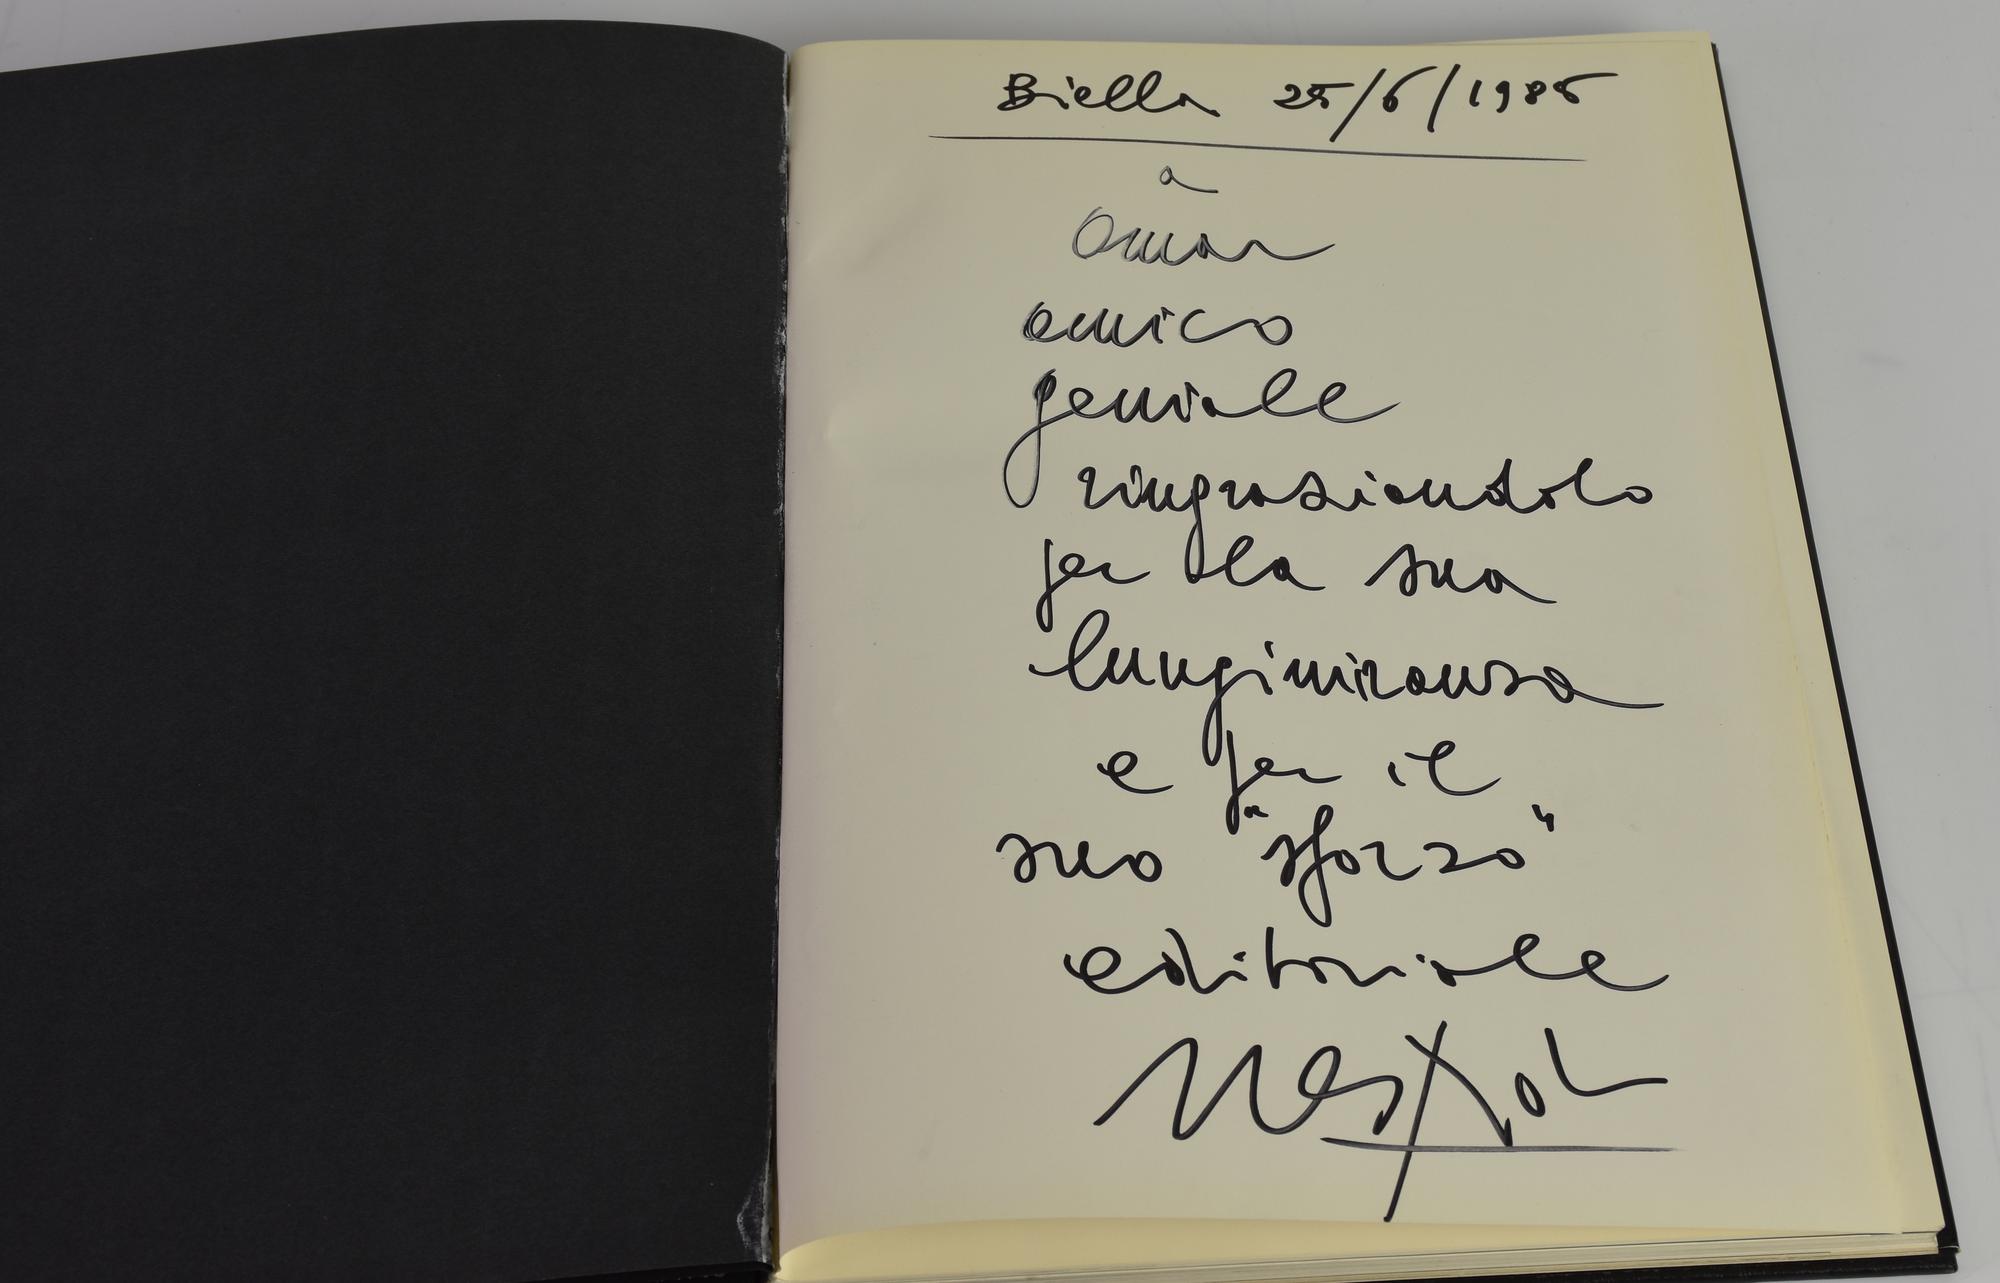 Biella 25/6/1985
a
Omar
amico
geniale
ringraziandolo
per la sua
lungimiranza
e per il
suo "sforzo"
editoriale
Nespolo